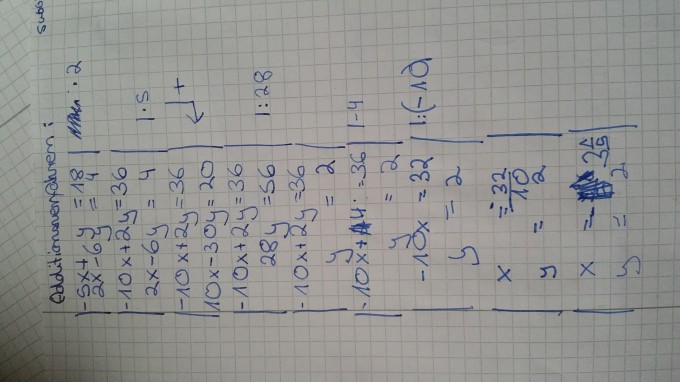 Additionsverfahren:
-5x+y = 18 | · 2
2x-6y = 4
-10x+2y=36
2x-6y = 4 | · 5
-10x+2y=36
10x-30y=20 +
-10x+2y=36
28y =56 |:28
-10x+2y=36
y = 2
-10x+4 =36 |-4
y = 2
-10x =32 |:(-10)
y = 2
x = -32/10
y = 2
x = -
y = 2
subs